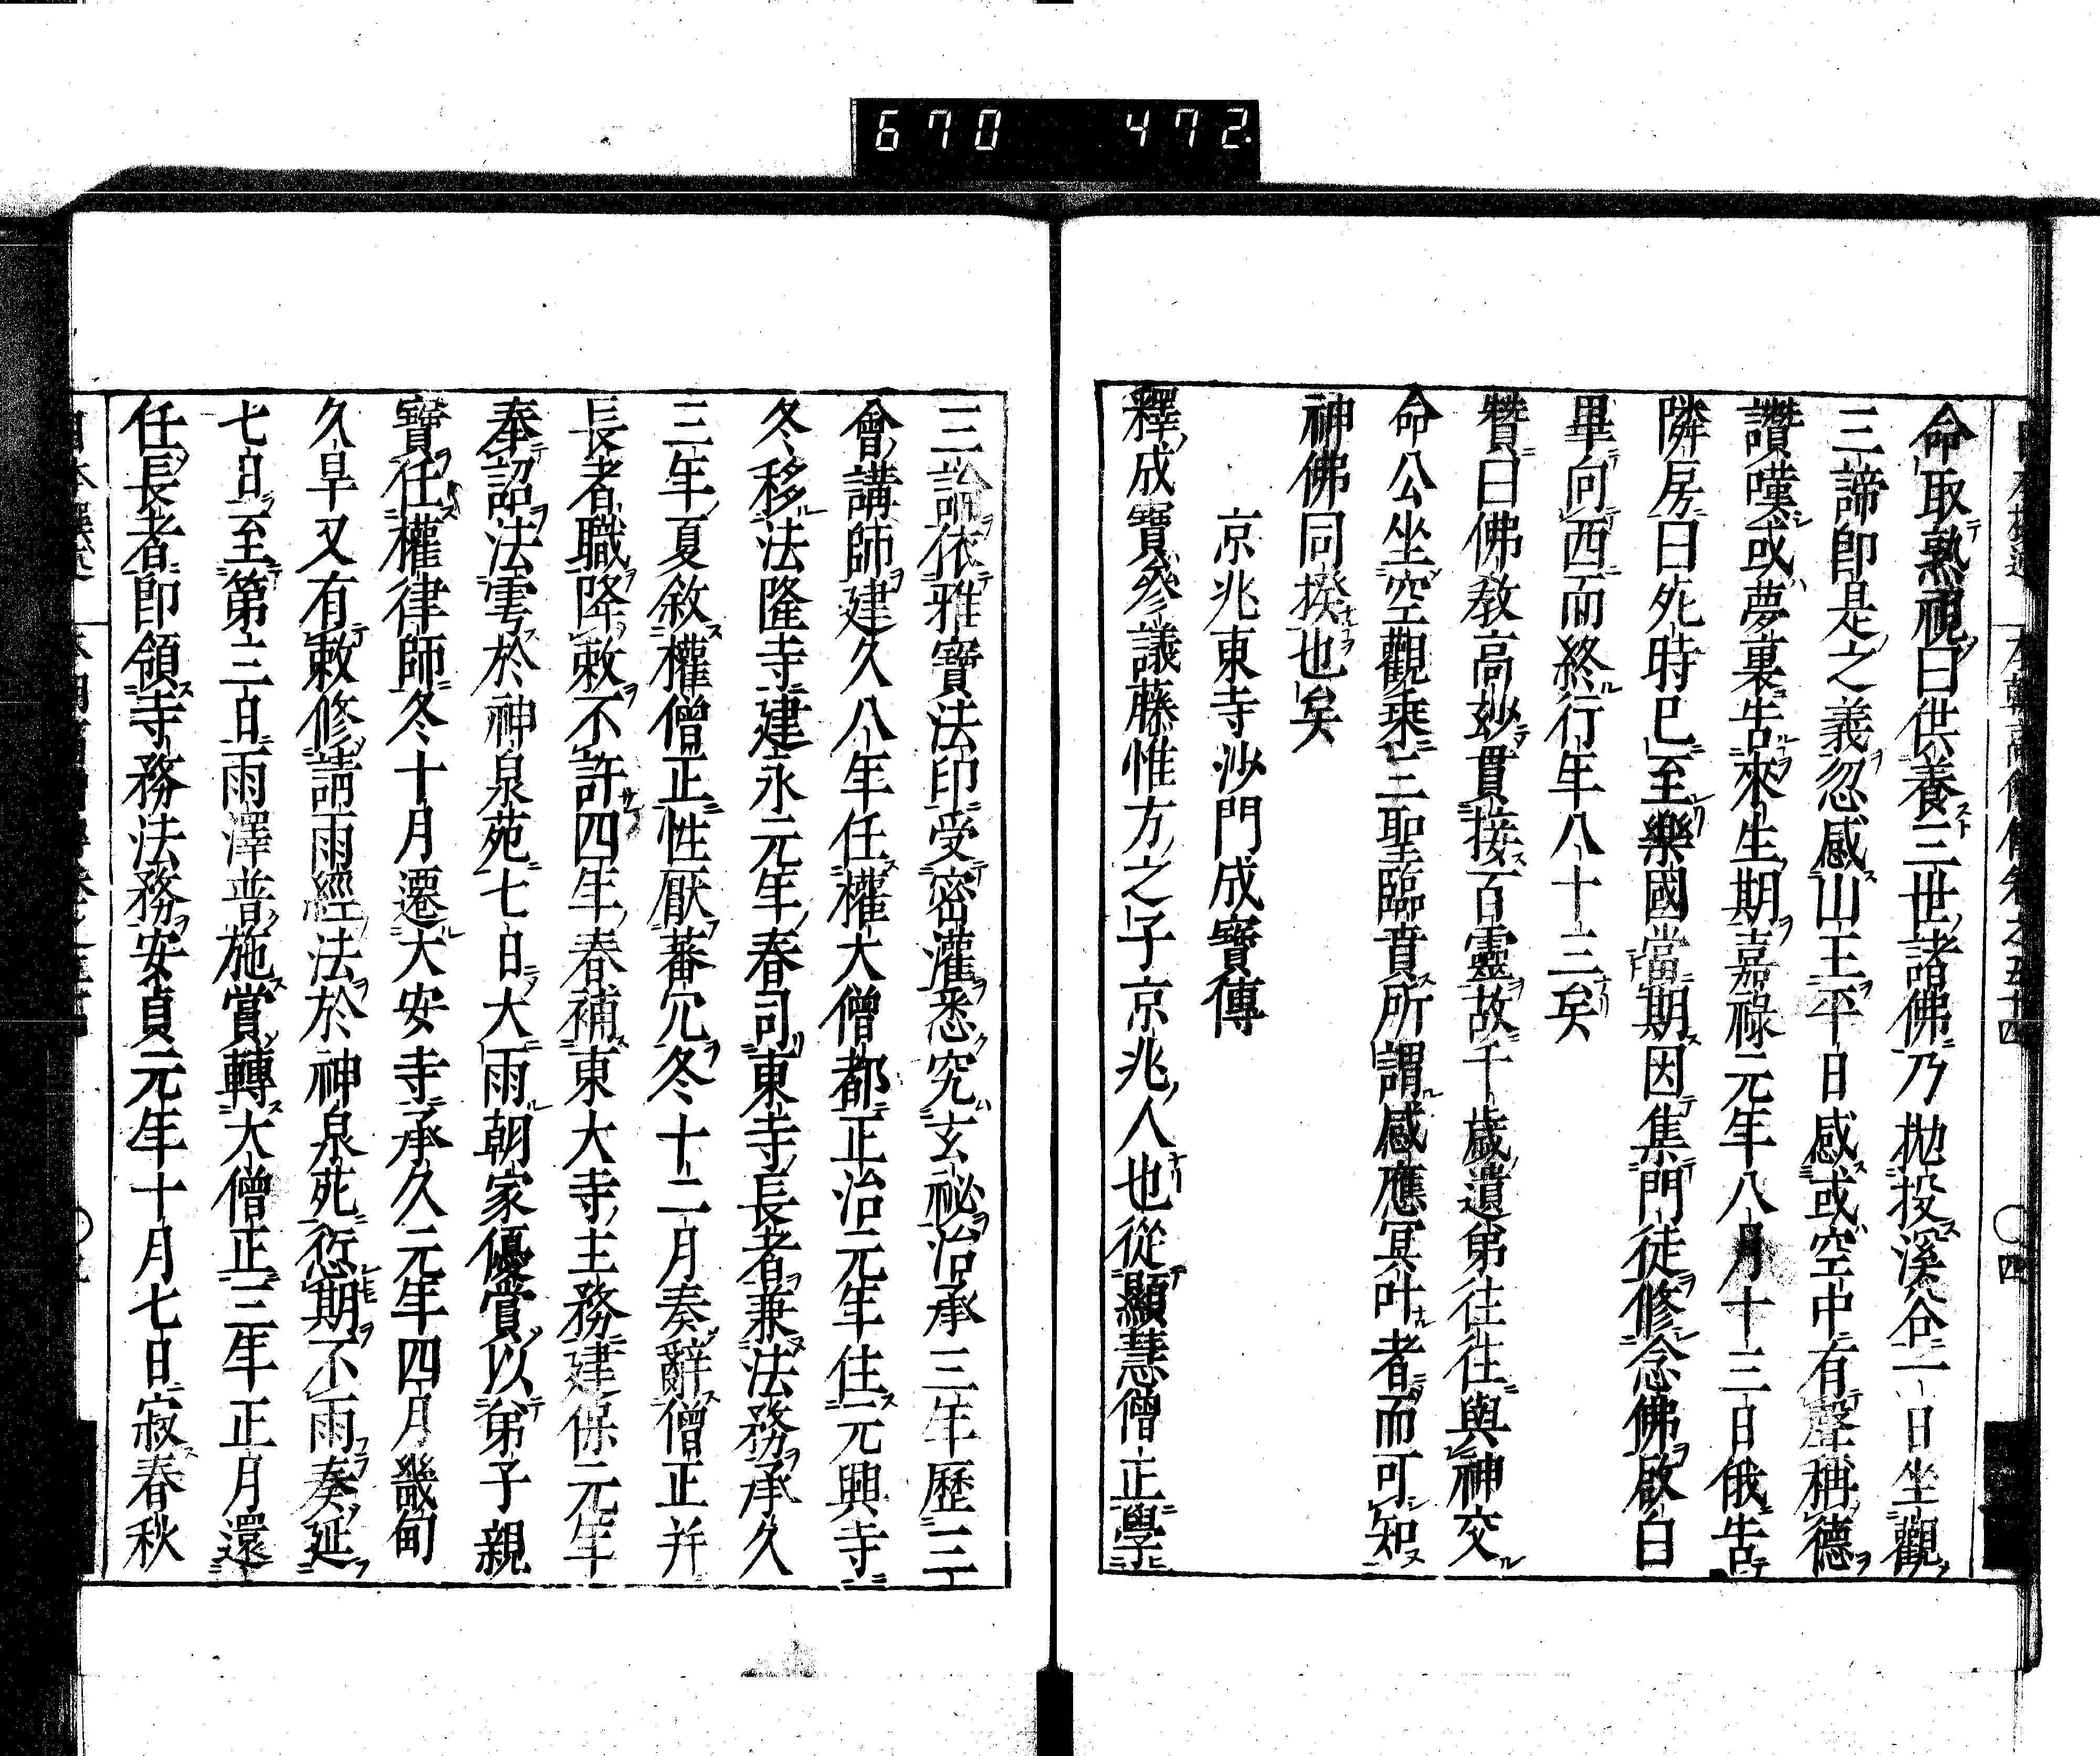 670 472.
命取熟視曰供養三世諸佛乃拋投溪谷一日坐觀
三諦即是之義忽感山王平日感或空中有聲稱德
讚嘆或夢裏告來生期嘉祿元年八月十三日俄告
隣房曰死時巳至樂國當期因集門徒修念佛啟白
畢向西而終行年八十三矣
贊曰佛教高妙貫接百靈故千歲遺弟往往與神交
命公坐空觀乘三聖臨賁所謂感應冥叶者而可知
神佛同揆也矣
京兆東寺沙門成寶傳
釋成寶參議藤惟方之子京兆人也從顯慧僧正學
三論依雅寶法印受密灌悉究玄祕治承三年歷三
會講師建久八年任權大僧都正治元年住元興寺
冬移法隆寺建永元年春司東寺長者兼法務承久
三年夏敘權僧正性厭蕃冗冬十二月奏辭僧正并
長者職降敕不許四年春補東大寺主務建保元年
奉詔法雩於神泉苑七日大雨朝家優賞以弟子親
寶任權律師冬十月遷大安寺承久元年四月畿甸
久旱又有敕修請雨經法於神泉苑愆期不雨奏延
七日至第三日雨澤普施賞轉大僧正三年正月還
任長者即領寺務法務安貞元年十月七日寂春秋